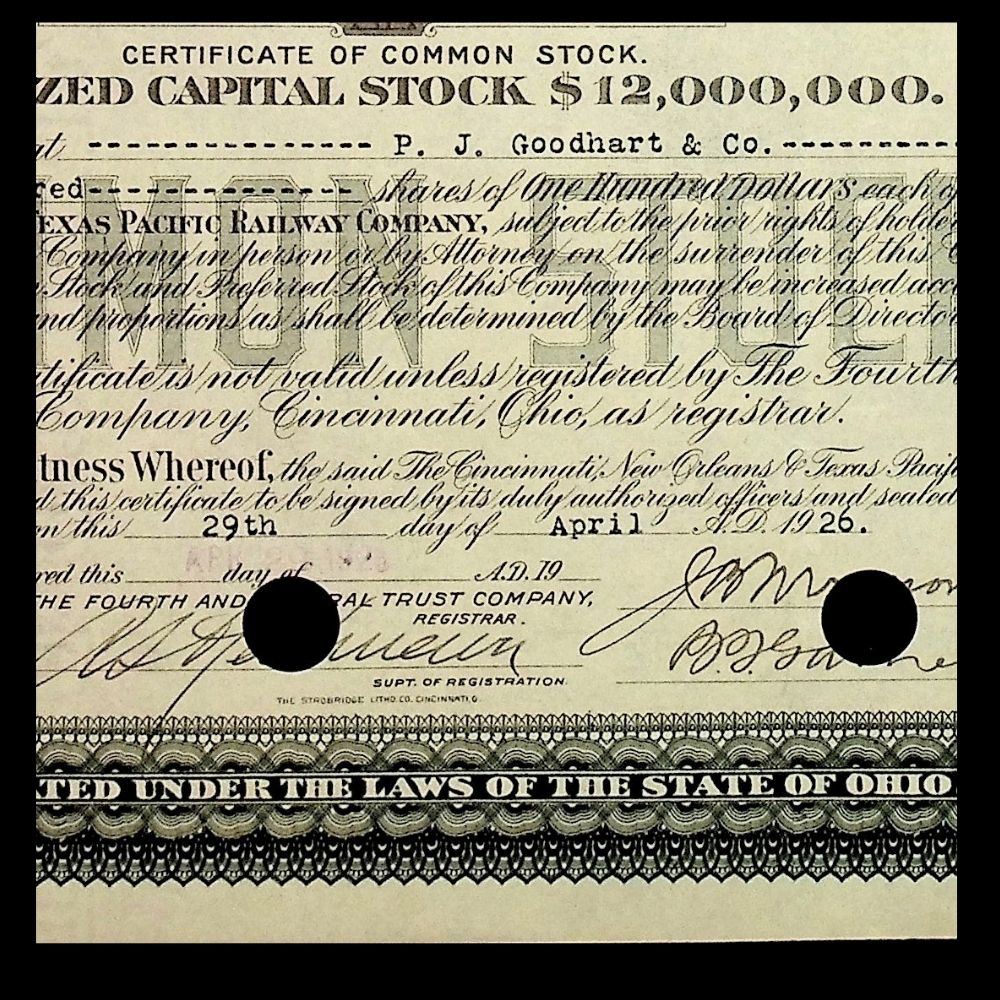 CERTIFICATE OF COMMON STOCK.
ZED CAPITAL STOCK $12,000,000.
at P. J. Goodhart & Co.
red shares of One Hundred Dollars each of
EXAS PACIFIC RAILWAY COMPANY, subject to the prior rights of holde
Company in person or by Attorney on the surrender of this C
n Stock and Preferred Stock of this Company may be increased acc
nd proportions as shall be determined by the Board of Director
tificate is not valid unless registered by The Fourth
Company, Cincinnati, Ohio, as registrar.
tness Whereof, the said The Cincinnati, New Orleans & Texas Pacif
d this certificate to be signed by its duly authorized officers and sealed
on this 29th day of April A.D. 1926.
red this day of A.D. 19
HE FOURTH AND RAL TRUST COMPANY,
REGISTRAR.
SUPT. OF REGISTRATION.
THE STROBRIDGE LITHO. CO. CINCINNATI, O.
TED UNDER THE LAWS OF THE STATE OF OHIO